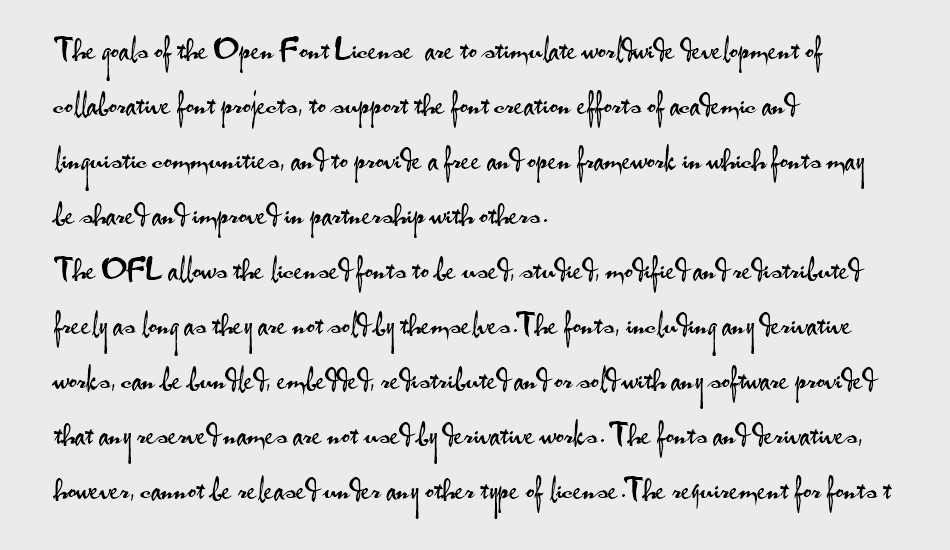 The goals of the Open Font License are to stimulate worldwide development of
collaborative font projects, to support the font creation efforts of academic and
linguistic communities, and to provide a free and open framework in which fonts may
be shared and improved in partnership with others.
The OFL allows the licensed fonts to be used, studied, modified and redistributed
freely as long as they are not sold by themselves. The fonts, including any derivative
works, can be bundled, embedded, redistributed and or sold with any software provided
that any reserved names are not used by derivative works. The fonts and derivatives,
however, cannot be released under any other type of license. The requirement for fonts t